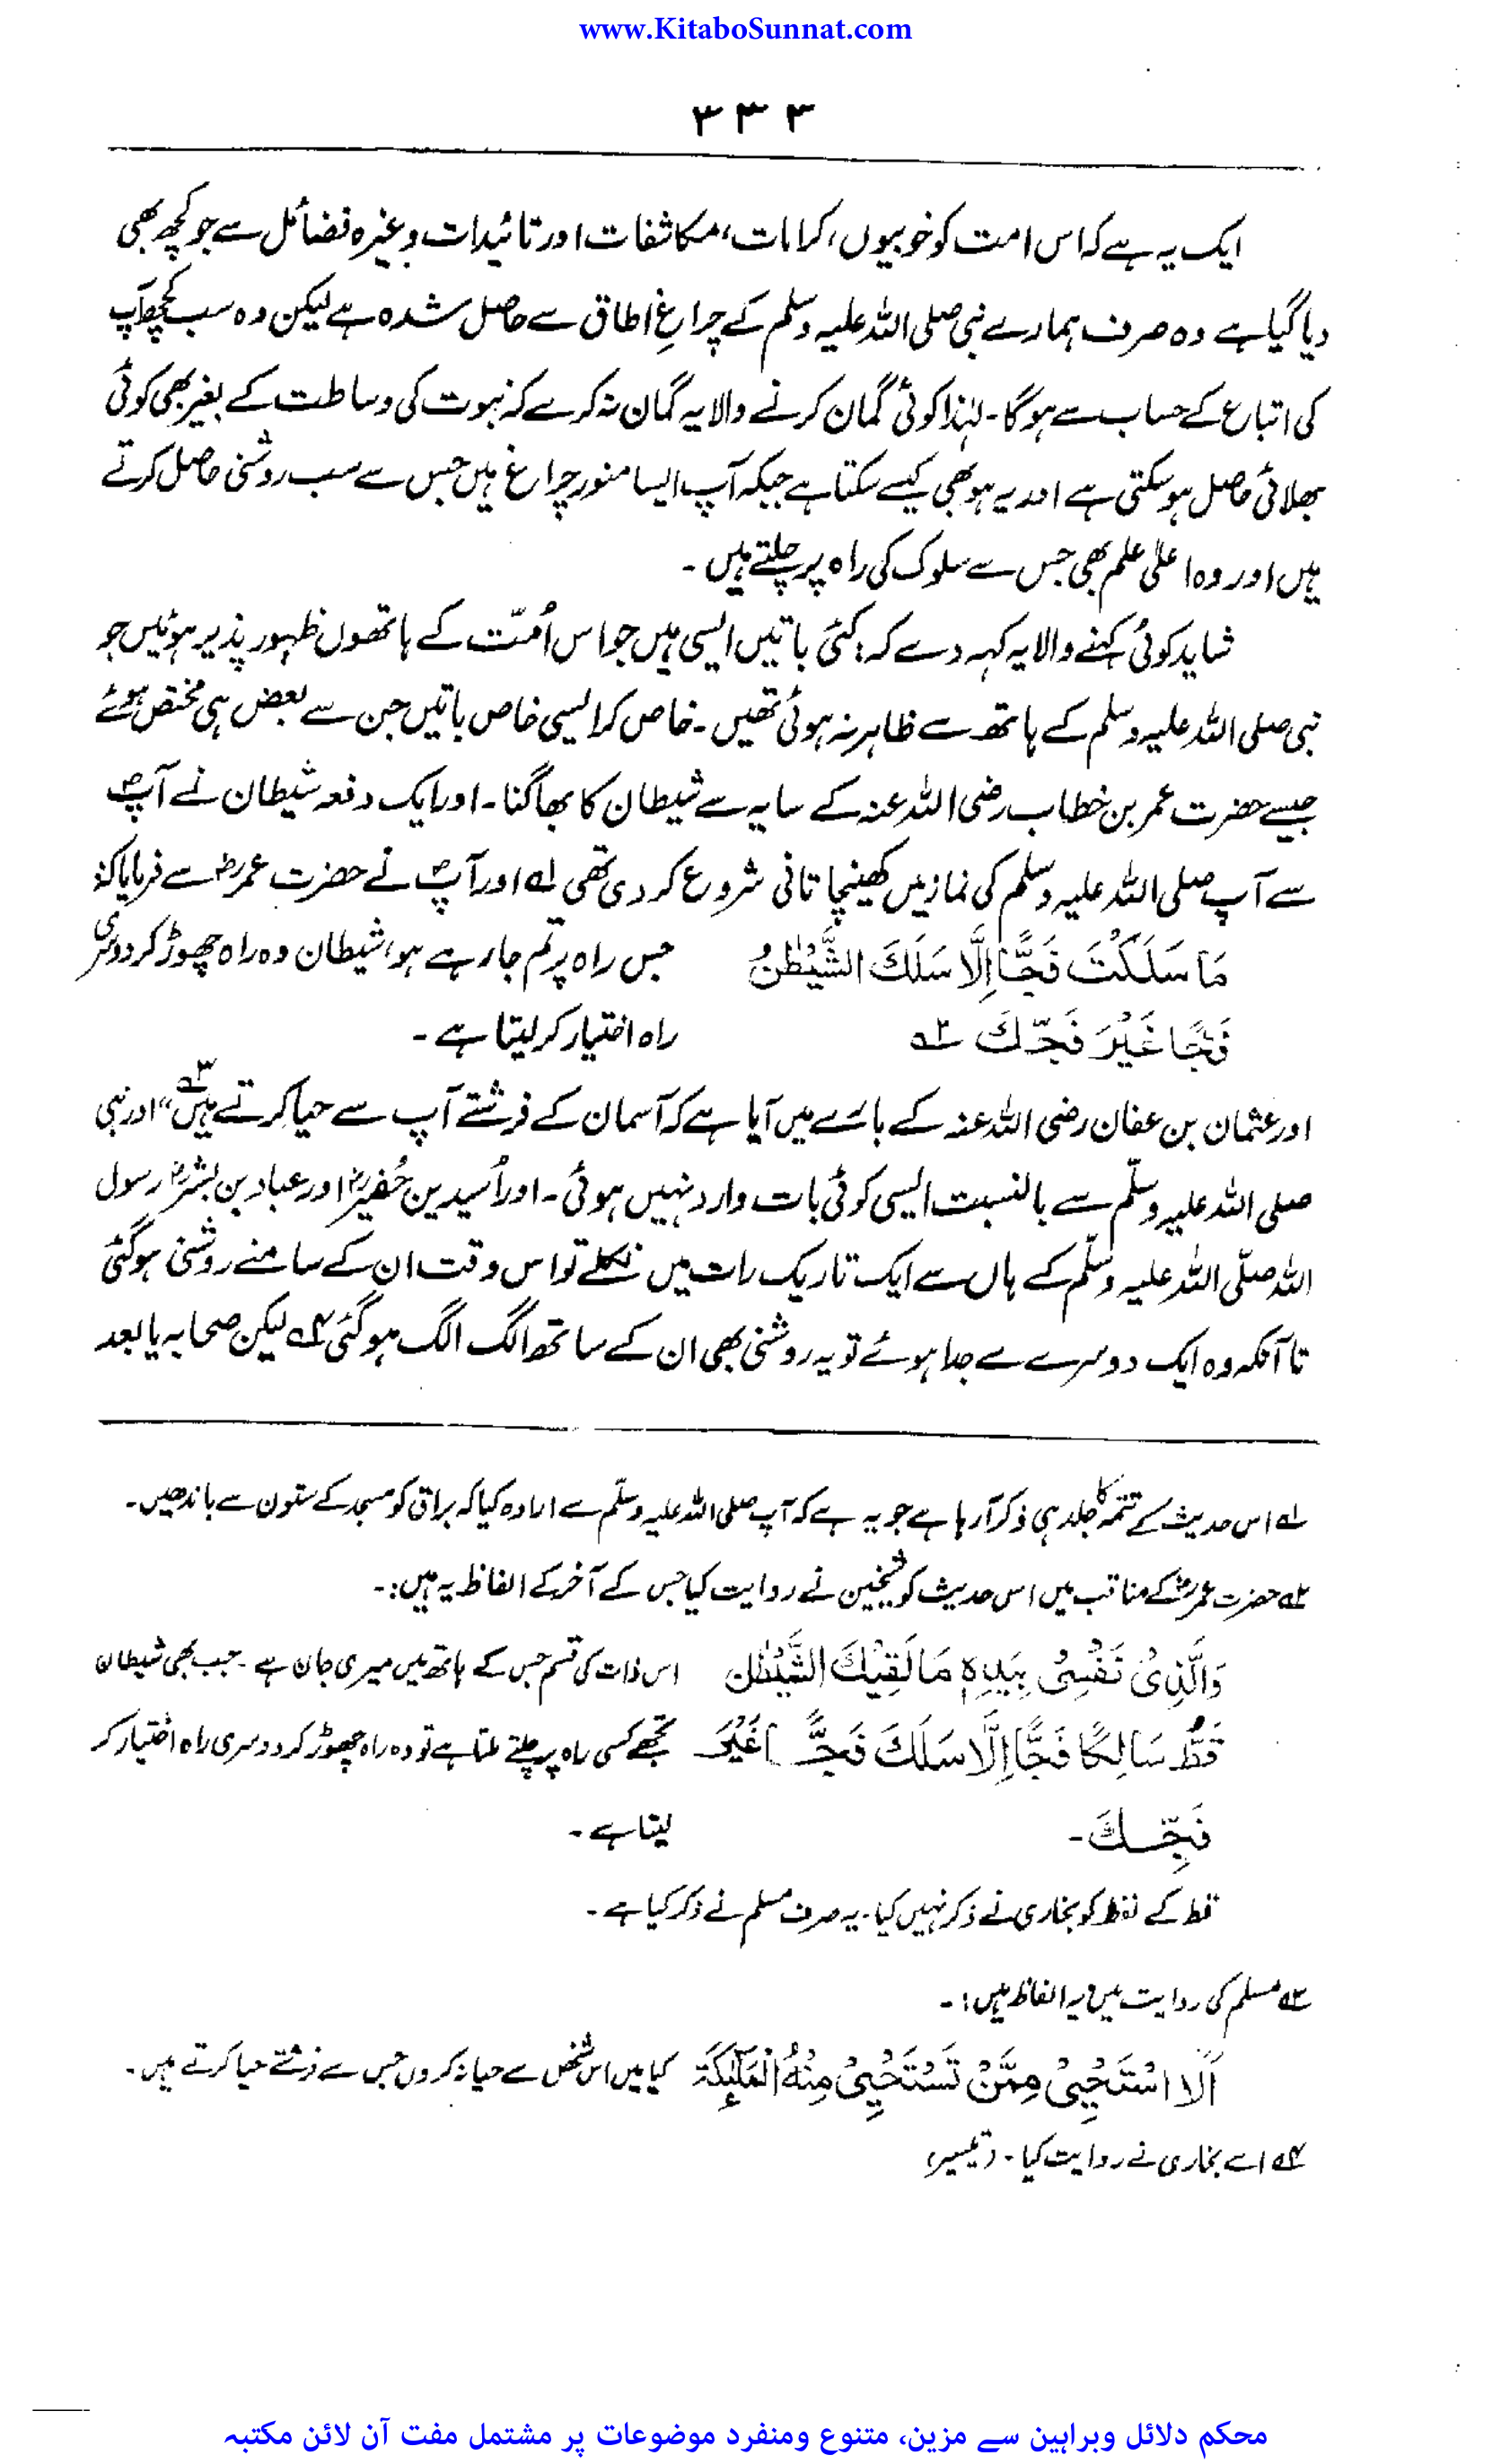 www.KitaboSunnat.com
۳۳۳
ایک یہ ہے کہ اس امت کو خوبیوں، کرامات، مکاشفات اور تائیدات وغیرہ فضائل سے جو کچھ بھی
دیا گیا ہے وہ صرف ہمارے نبی صلی اللہ علیہ وسلم کے چراغِ اطاق سے حاصل شدہ ہے لیکن وہ سب کچھ آپ
کی اتباع کے حساب سے ہوگا۔ لہٰذا کوئی گمان کرنے والا یہ گمان نہ کرے کہ نبوت کی وساطت کے بغیر بھی کوئی
بھلائی حاصل ہو سکتی ہے اور یہ ہو بھی کیسے سکتا ہے جبکہ آپ ایسا منور چراغ ہیں جس سے سب روشنی حاصل کرتے
ہیں اور وہ اعلیٰ علم بھی جس سے سلوک کی راہ پر چلتے ہیں۔
شاید کوئی کہنے والا یہ کہہ دے کہ: کئی باتیں ایسی ہیں جو اس اُمّت کے ہاتھوں ظہور پذیر ہوئیں جو
نبی صلی اللہ علیہ وسلم کے ہاتھ سے ظاہر نہ ہوئی تھیں۔ خاص کر ایسی خاص باتیں جن سے بعض ہی مختص ہوئے
جیسے حضرت عمر بن خطاب رضی اللہ عنہ کے سایہ سے شیطان کا بھاگنا۔ اور ایک دفعہ شیطان نے آپؐ
سے آپ صلی اللہ علیہ وسلم کی نماز میں کھینچا تانی شروع کر دی تھی ۱؎ اور آپؐ نے حضرت عمرؓ سے فرمایا کہ:
مَا سَلَكْتَ فَجًّا اِلَّا سَلَكَ الشَّيْطٰنُ جس راہ پر تم جا رہے ہو، شیطان وہ راہ چھوڑ کر دوسری
فَجًّا غَيْرَ فَجِّكَ ۲؎ راہ اختیار کر لیتا ہے۔
اور عثمان بن عفان رضی اللہ عنہ کے بارے میں آیا ہے کہ آسمان کے فرشتے آپ سے حیا کرتے ہیں۳؎“ اور نبی
صلی اللہ علیہ وسلّم سے بالنسبت ایسی کوئی بات وارد نہیں ہوئی۔ اور اُسید بن حُضیرؓ اور عباد بن بشرؓ رسول
اللہ صلّی اللہ علیہ وسلّم کے ہاں سے ایک تاریک رات میں نکلے تو اس وقت ان کے سامنے روشنی ہوگئی
تا آنکہ وہ ایک دوسرے سے جدا ہوئے تو یہ روشنی بھی ان کے ساتھ الگ الگ ہوگئی ۴؎ لیکن صحابہ یا بعد
۱؎ اس حدیث کے تتمہ کا جلد ہی ذکر آ رہا ہے جو یہ ہے کہ آپ صلی اللہ علیہ وسلّم سے ارادہ کیا کہ براق کو مسجد کے ستون سے باندھیں۔
۲؎ حضرت عمرؓ کے مناقب میں اس حدیث کو شیخین نے روایت کیا جس کے آخر کے الفاظ یہ ہیں:۔
وَالَّذِیْ نَفْسِیْ بِيَدِهٖ مَا لَقِيَكَ الشَّيْطٰن اس ذات کی قسم جس کے ہاتھ میں میری جان ہے۔ جب بھی شیطان
قَطُّ سَالِكًا فَجًّا اِلَّا سَلَكَ فَجًّا غَيْرَ تجھے کسی راہ پر چلتے ملتا ہے تو وہ راہ چھوڑ کر دوسری راہ اختیار کر
فَجِّكَ۔ لیتا ہے۔
قط کے لفظ کو بخاری نے ذکر نہیں کیا۔ یہ صرف مسلم نے ذکر کیا ہے۔
۳؎ مسلم کی روایت میں یہ الفاظ ہیں:۔
اَلَا اسْتَحْيِیْ مِمَّنْ تَسْتَحْيِیْ مِنْهُ الْمَلٰٓئِكَةُ کیا میں اس شخص سے حیا نہ کروں جس سے فرشتے حیا کرتے ہیں۔
۴؎ اسے بخاری نے روایت کیا۔ (تیسیر)
محکم دلائل وبراہین سے مزین، متنوع ومنفرد موضوعات پر مشتمل مفت آن لائن مکتبہ